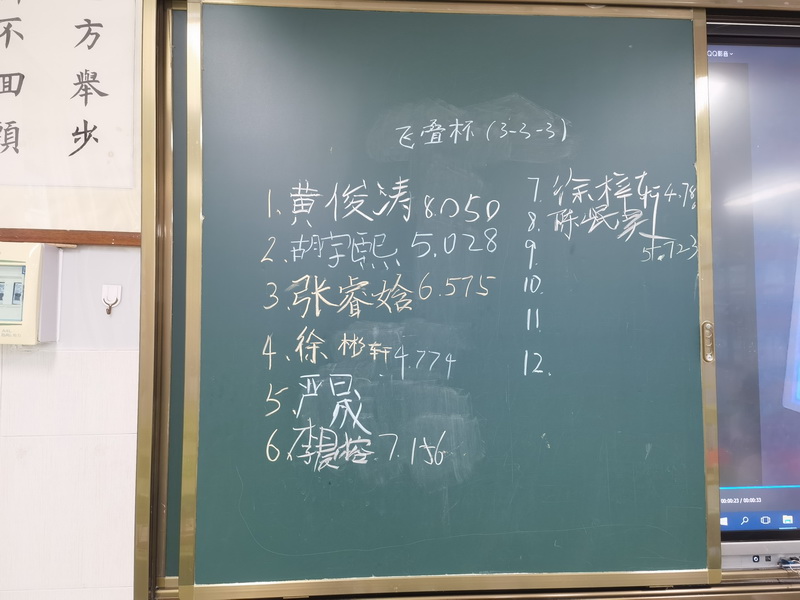 方舉步
不回頭
飞叠杯(3-3-3)
1.黄俊涛8.050
2.胡宇熙5.028
3.张睿焓6.575
4.徐彬轩4.774
5.严晟
6.李晨榕7.156
7.徐梓轩4.78
8.陈
5.723
9.
10.
11.
12.
QQ影音
00:00:23 / 00:00:33